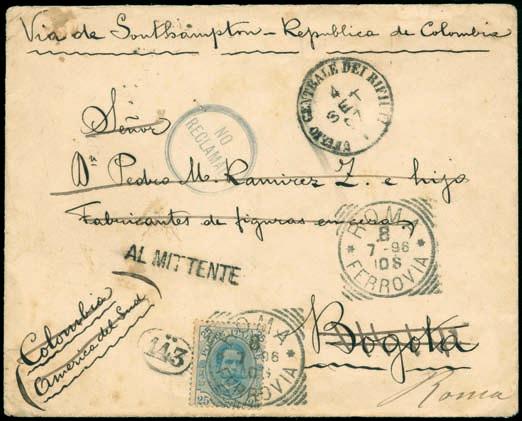 Via de Southampton - Republica de Colombia
UFFICIO CENTRALE DEI RIFIUTI
4
SET
97
Señor
NO
RECLAMADO
Dn Pedro M. Ramirez Z. e hijo
Fabricantes de figuras en cera
ROMA
8
7-96
10S
FERROVIA
AL MITTENTE
Colombia
America del Sud
143
25
ROMA
8
7-96
10S
FERROVIA
Bogotá
Roma